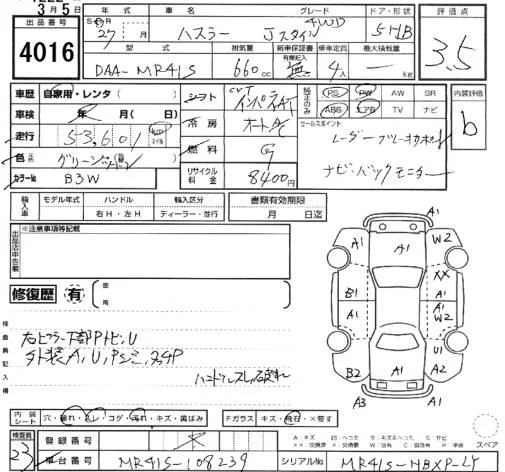 3月5日
出品番号
4016
年式 車名 グレード ドア・形状 評価点
27 月 ハスラー Jスタイル 4WD 5HB 3.5
型式 排気量 新車保証書 乗車定員 最大積載量
有無記入
DAA-MR41S 660cc 無 4人 — kg
車歴 自家用・レンタ( )
車検 年 月( 日)
走行 53,601 km マイル
色 グリーン
カラーNo B3W
シフト CVT インパネAT
冷房 オートAC
燃料 G
リサイクル料金 8400円
純正のみ PS PW AW SR
ABS エアB TV ナビ
内装評価
b
セールスポイント
レーダーブレーキサポート
ナビ・バックモニター
輸入車 モデル年式 ハンドル 輸入区分
右H・左H ディーラー・並行
書類有効期限
月 日迄
出品店申告欄
※注意事項等記載
修復歴 有 箇所
検査員記入欄
右ピラー下部Pトビ、U
外装A、U、Pシミ、タッチP
ハンドルスレ
A1
A1 A1 W2
XX
B1 A1 A1
A1 W2
U1
B2 A1 A2
A3 A1
内装シート 穴・破れ・スレ・コゲ・汚れ・キズ・黄ばみ
Fガラス キズ・飛石・×要す
スペア
検査員 23
登録番号
車台番号 MR41S-108239
シリアルNo MR41S-NBXP-LY